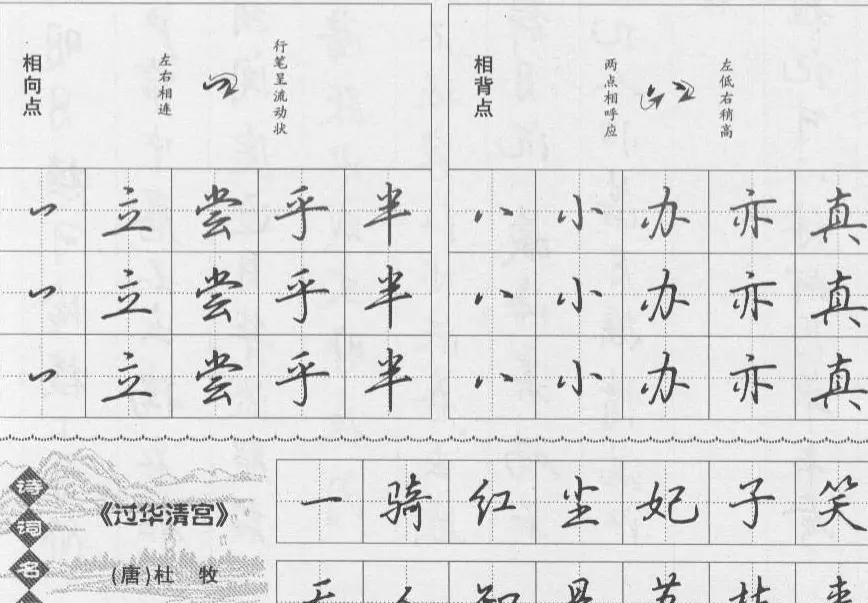 相向点
左右相连
行笔呈流动状
相背点
两点相呼应
左低右稍高
丷 立 尝 乎 半
丷 立 尝 乎 半
丷 立 尝 乎 半
八 小 办 亦 真
八 小 办 亦 真
八 小 办 亦 真
诗词名
《过华清宫》
(唐)杜 牧
一 骑 红 尘 妃 子 笑
无 人 知 是 荔 枝 来